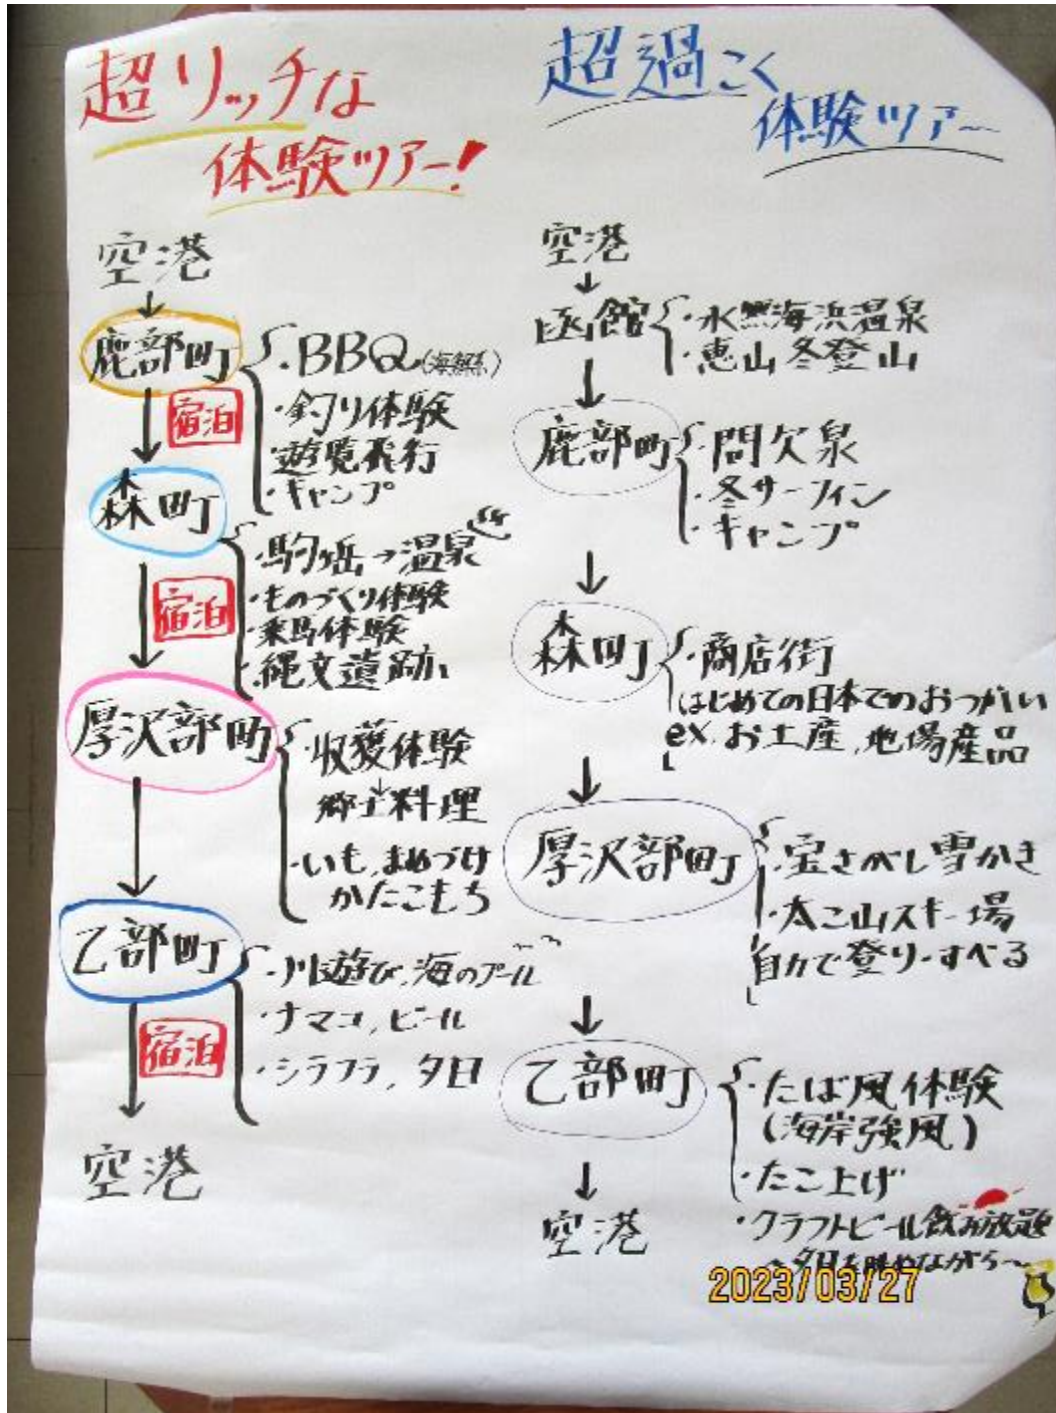 超リッチな
体験ツアー!
空港
↓
鹿部町
・BBQ(海鮮系)
・釣り体験
遊覧飛行
・キャンプ
↓
宿泊
森町
・駒ヶ岳→温泉
・ものづくり体験
・乗馬体験
・縄文遺跡
↓
宿泊
厚沢部町
・収獲体験
↓
郷土料理
・いも、まめづけ
かたこもち
↓
乙部町
・川遊び、海のプール
・ナマコ、ビール
・シラフラ、夕日
↓
宿泊
空港
超過こく
体験ツアー
空港
↓
函館
・水無海浜温泉
・恵山冬登山
↓
鹿部町
・間欠泉
・冬サーフィン
・キャンプ
↓
森町
・商店街
はじめての日本でのおつかい
ex.お土産、地場産品
↓
厚沢部町
・宝さがし雪かき
・太こ山スキー場
自力で登り・すべる
↓
乙部町
・たば風体験
(海岸強風)
・たこ上げ
・クラフトビール飲み放題
~夕日を眺めながら~
↓
空港
2023/03/27